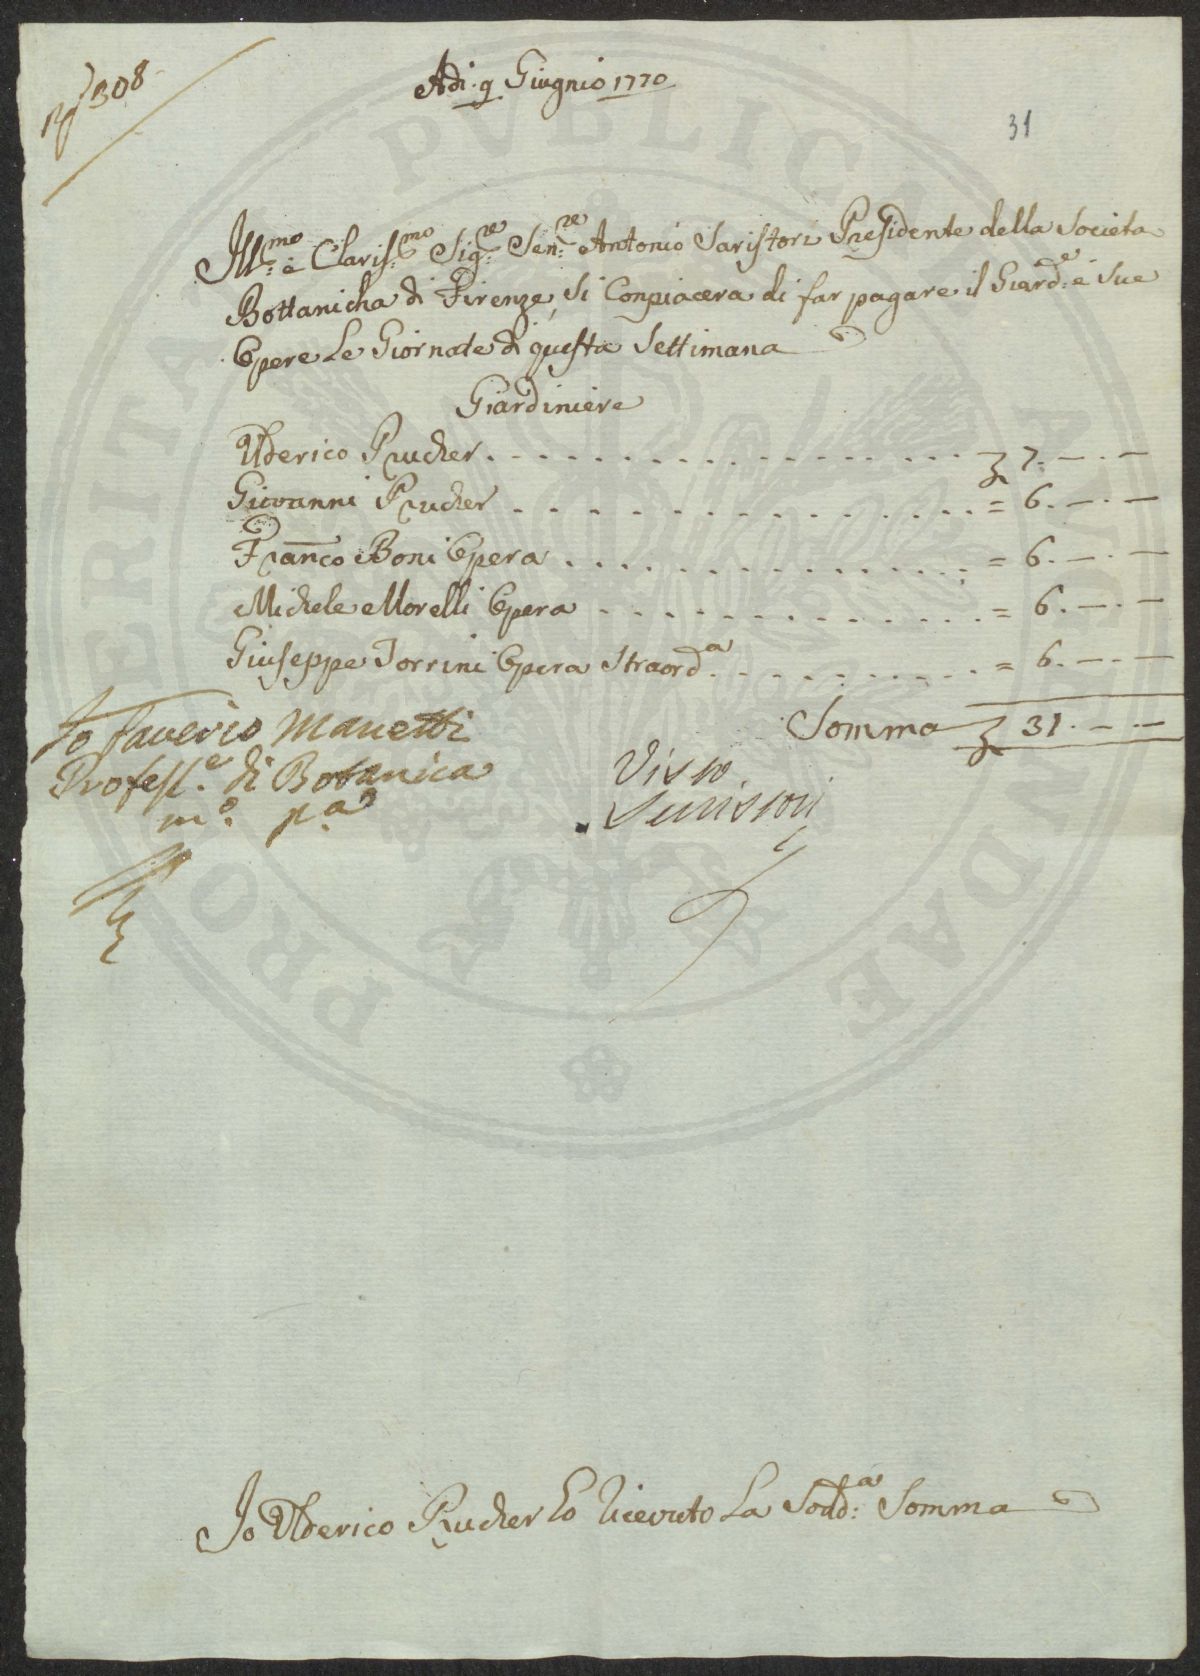 308
Adi. 9 Giugnio 1770
31
Ill.mo è Claris.mo Sig.re Sen.re Antonio Saristori Presidente della Societa
Bottanicha di Firenze, Si Conpiacera di far pagare il Giard.e è Sue
Opere Le Giornate di questa Settimana
Giardiniere
Ulderico Prucher. 7.
Giovanni Prucher = 6.
Franco Boni Opera = 6.
Michele Morelli Opera = 6.
Giuseppe Torrini Opera Straord.a = 6.
Somma 31.
Io Saverio Manetti
Profess.e di Botanica
m.o p.a
Visto
Io Ulderico Prucher ho Riceuto La Sodd.a Somma